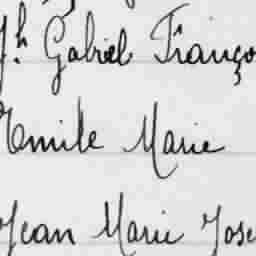 Jh. Gabriel Franço
Emile Marie
Jean Marie Jose